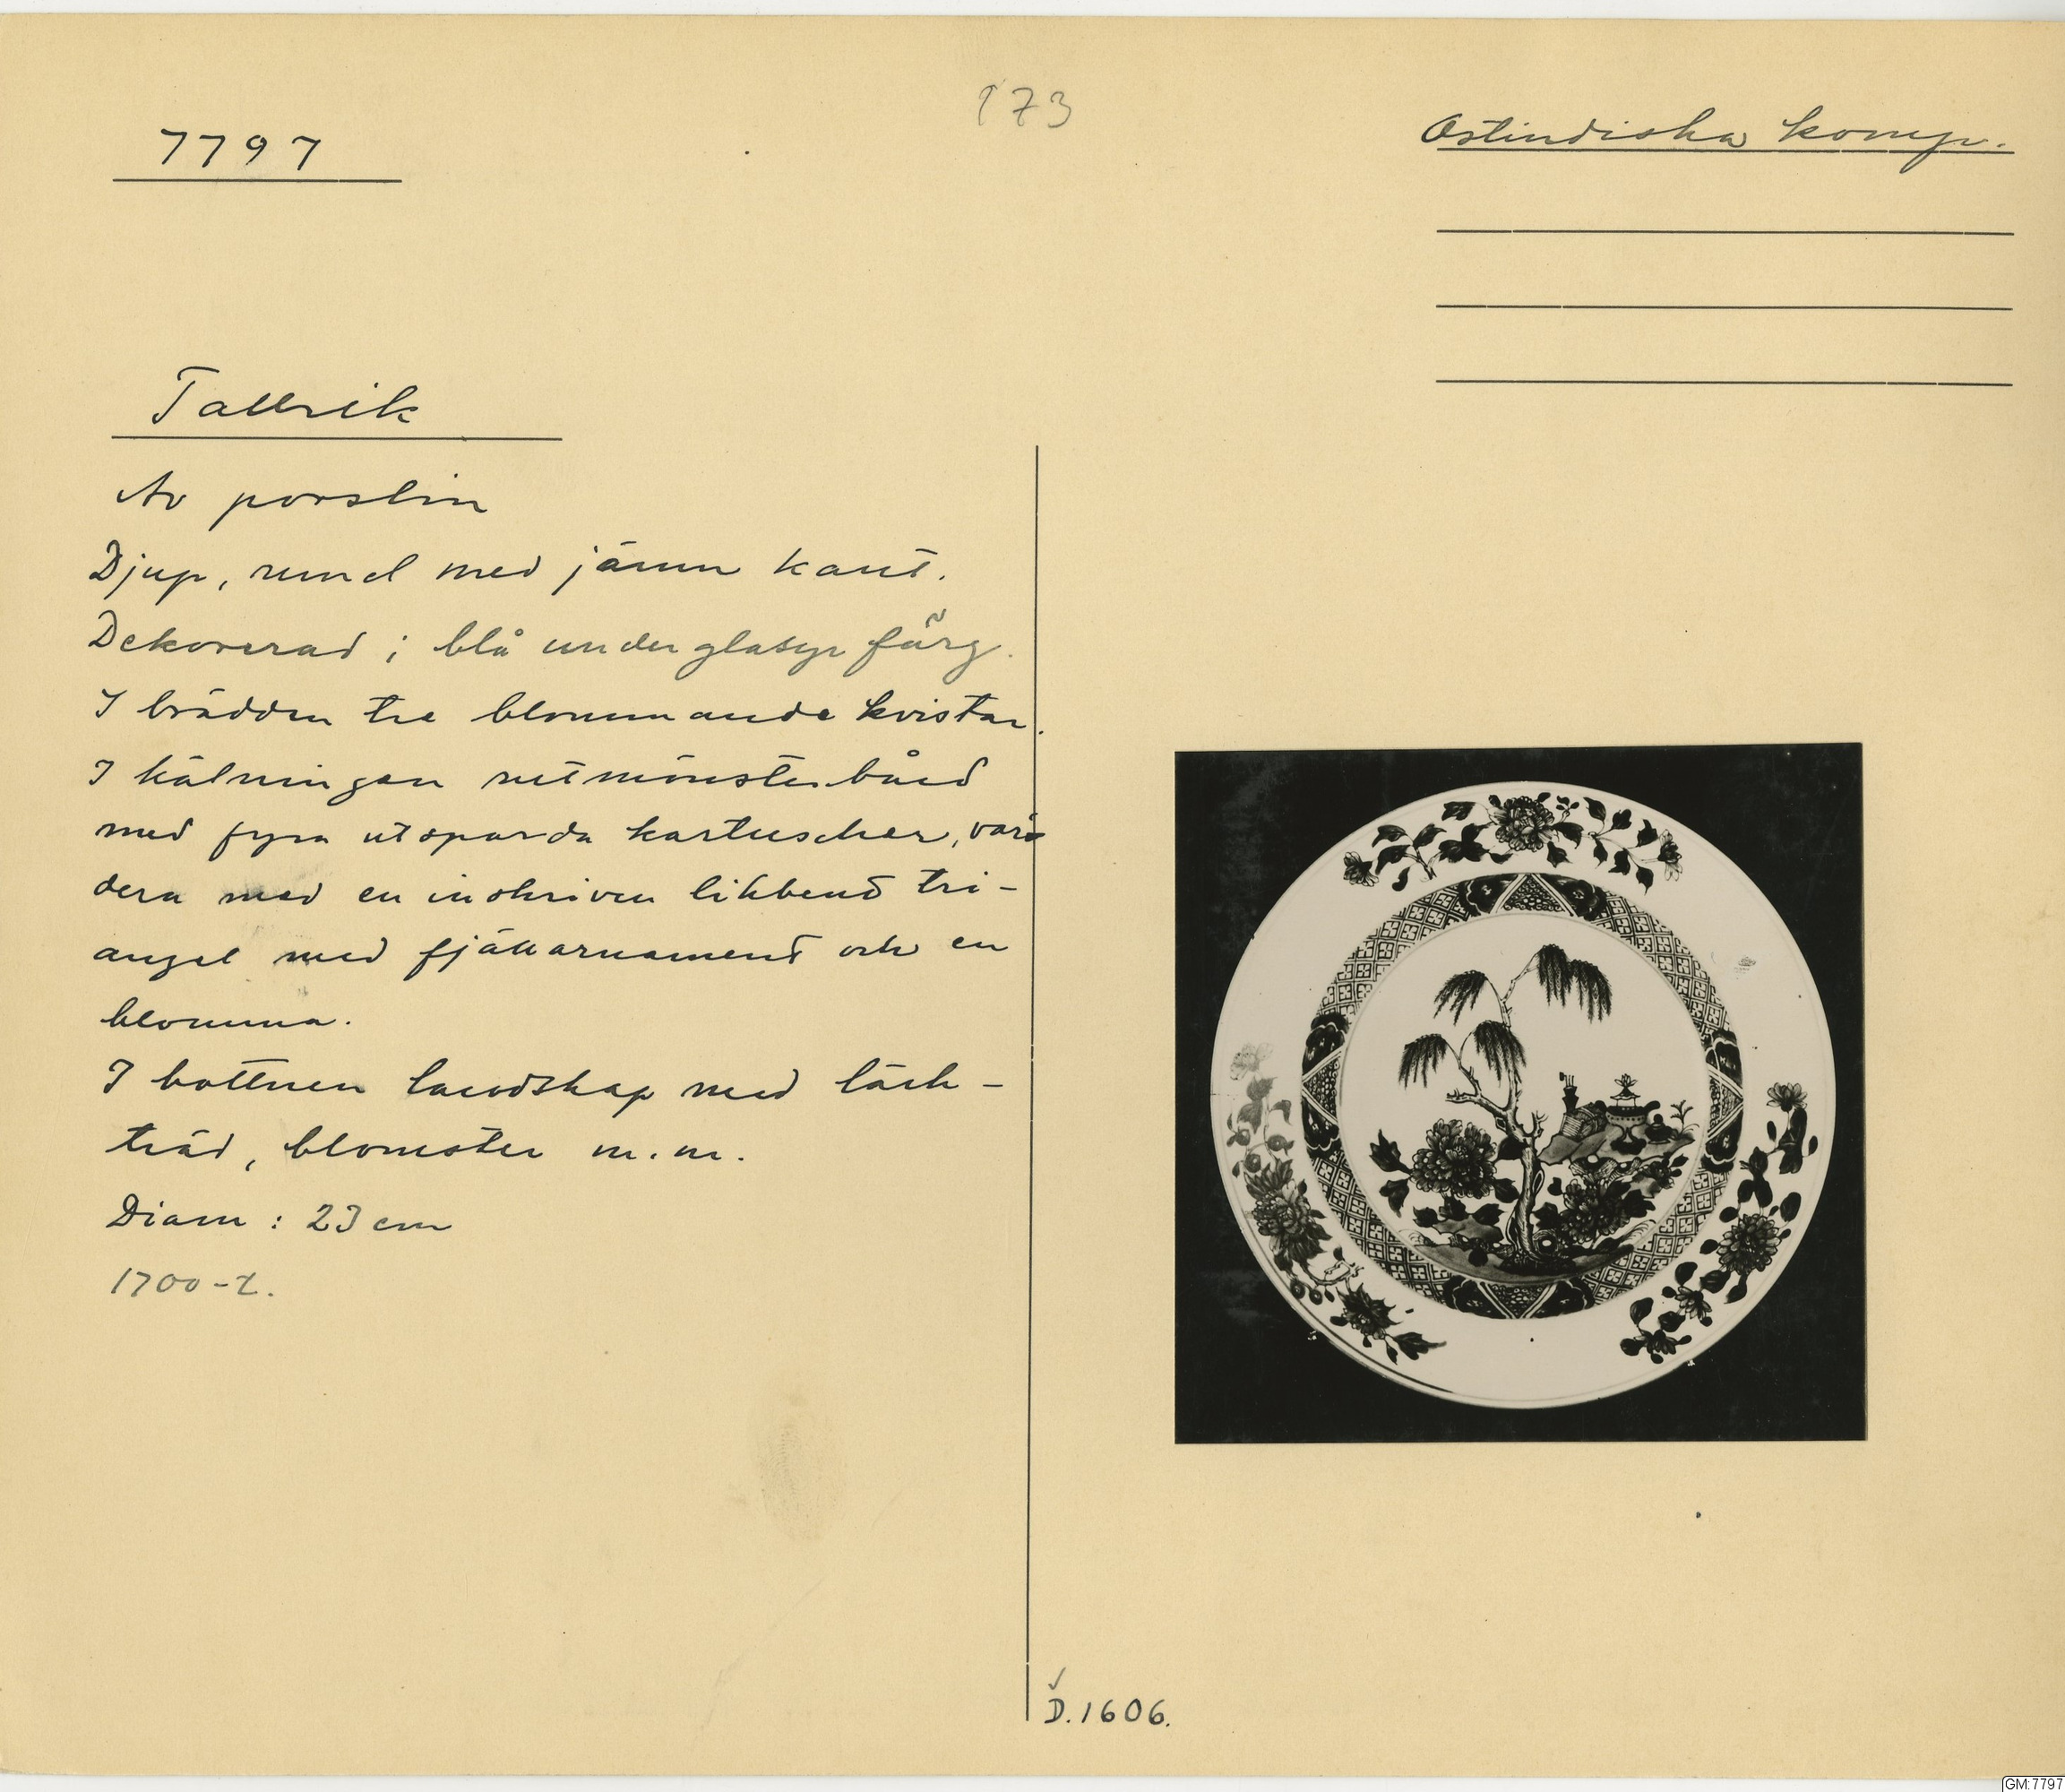 173
7797
Ostindiska komp.
Tallrik
Av porslin
Djup, rund med jämn kant.
Dekorerad i blå underglasyrfärg.
I brädden tre blommande kvistar.
I hålningen rutmönsterbård
med fyra utsparda kartuscher, vars
dera med en inskriven likbent tri-
angel med fjällornament och en
blomma.
I bottnen landskap med lärk-
träd, blomster m.m.
Diam: 23 cm
1700-t.
D.1606.
GM:7797